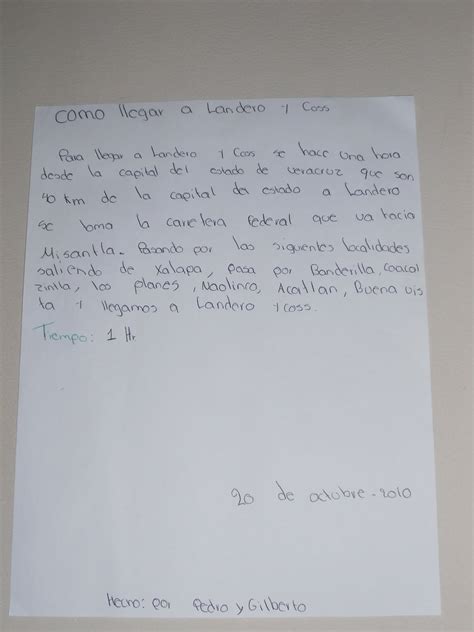 COMO llegar a Landero y Coss
Para llegar a Landero y Coss se hace una hora
desde la capital del estado de veracruz que son
40 km de la capital del estado a Landero
se toma la carretera Federal que va hacia
Misantla. Pasando por las siguientes localidades
saliendo de xalapa, pasa por Banderilla, coacoa
zintla, los planes, Naolinco, Acatlan, Buena vis
ta y llegamos a Landero y coss.
Tiempo: 1 Hr
20 de octubre - 2010
Hecho: por Pedro y Gilberto